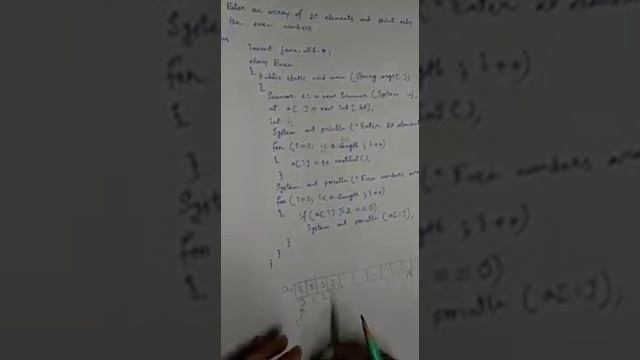 Enter an array of 20 elements and print only
the even numbers
ans:
import java.util.*;
class Even
{ public static void main (String args[])
{
Scanner sc = new Scanner (System.in);
int a[ ] = new int [20];
int i;
System.out.println ("Enter 20 element
for (i=0; i<a.length; i++)
{ a[i] = sc.nextInt();
}
System.out.println ("Even numbers are
for (i=0; i<a.length; i++)
{ if (a[i] % 2 == 0)
System.out.println (a[i]);
}
}
}